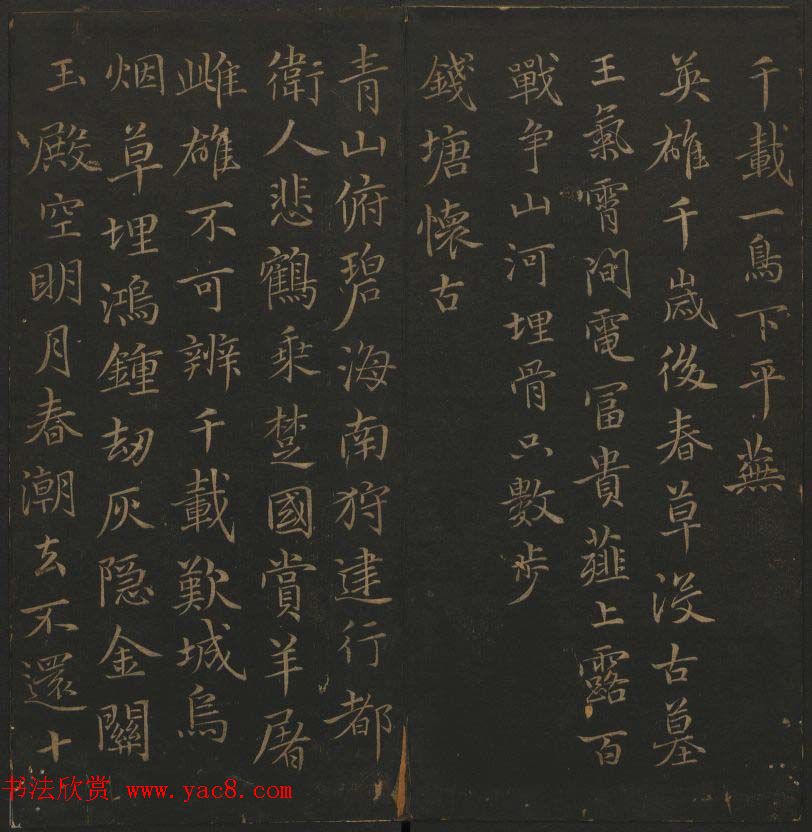 千載一鳥下平蕪
英雄千歲後春草沒古墓
王氣霄間電冨貴薤上露百
戰争山河埋骨只數步
錢塘懷古
青山俯碧海南狩建行都
衛人悲鶴乗楚國賞羊屠
雌雄不可辨千載歎城烏
烟草埋鴻鍾刼灰隐金關
玉殿空明月春潮去不還十
书法欣赏 www.yac8.com